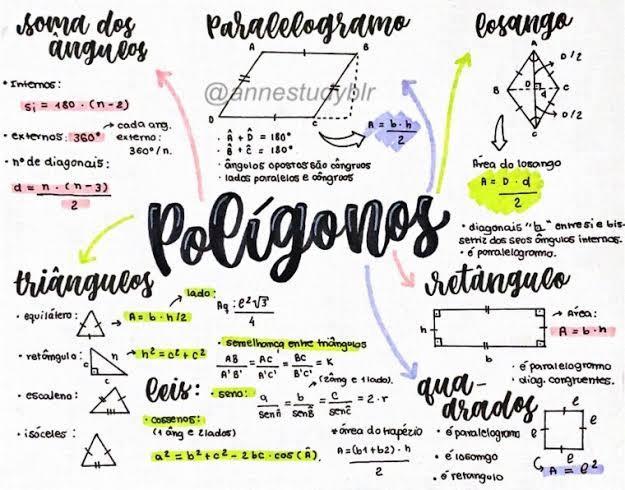 soma dos
ângulos
• Internos:
si = 180 • (n-2)
• externos: 360° → cada ang.
externo:
360°/n.
• nº de diagonais:
d = n • (n-3)
2
Paralelogramo
A
B
D
C
@annestudyblr
A = b • h
2
• Â + D̂ = 180°
• B̂ + Ĉ = 180°
• ângulos opostos são côngruos
• lados paralelos e côngruos
losango
A
D/2
B
D
d
C
D/2
C
Área do losango
A = D • d
2
• diagonais "b" entre si e bis-
setriz dos seus ângulos internos.
• é paralelogramo.
Polígonos
triângulos
• equilátero:
→ A = b • h/2
lado:
Aq : e²√3
4
• retângulo:
c
n
c
→ h² = c² + c²
• escaleno:
• isóceles:
• semelhança entre triângulos
AB = AC = BC = K
A'B' A'C' B'C'
leis:
• seno:
(2âng e 1 lado).
a = b = c = 2 • r
senÂ senB̂ senĈ
• cossenos:
(1 âng e 2 lados)
a² = b² + c² - 2bc • cos(Â)
• área do trapézio
A = (b1 + b2) • h
2
retângulo
h
b
→ Área:
A = b • h
• é paralelogramo
• diag. congruentes.
qua-
drados
• é paralelogramo
• é losango
• é retangulo
e
e
e
A = e²